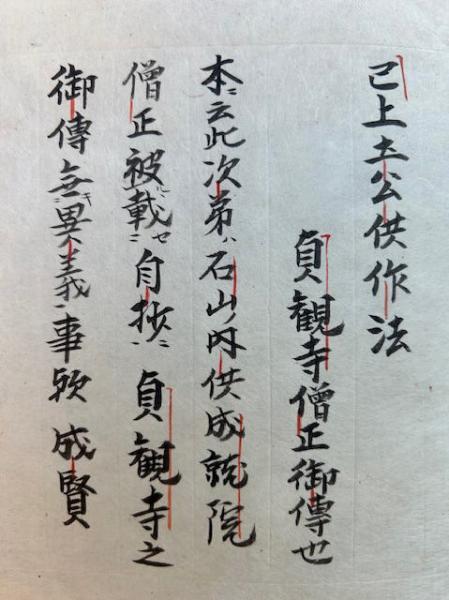 已上土公供作法
貞観寺僧正御傳也
本ニ云此次第ハ石山ノ内供成就院
僧正被載セ自抄ニ貞観寺之
御傳無キ異義事欤成賢